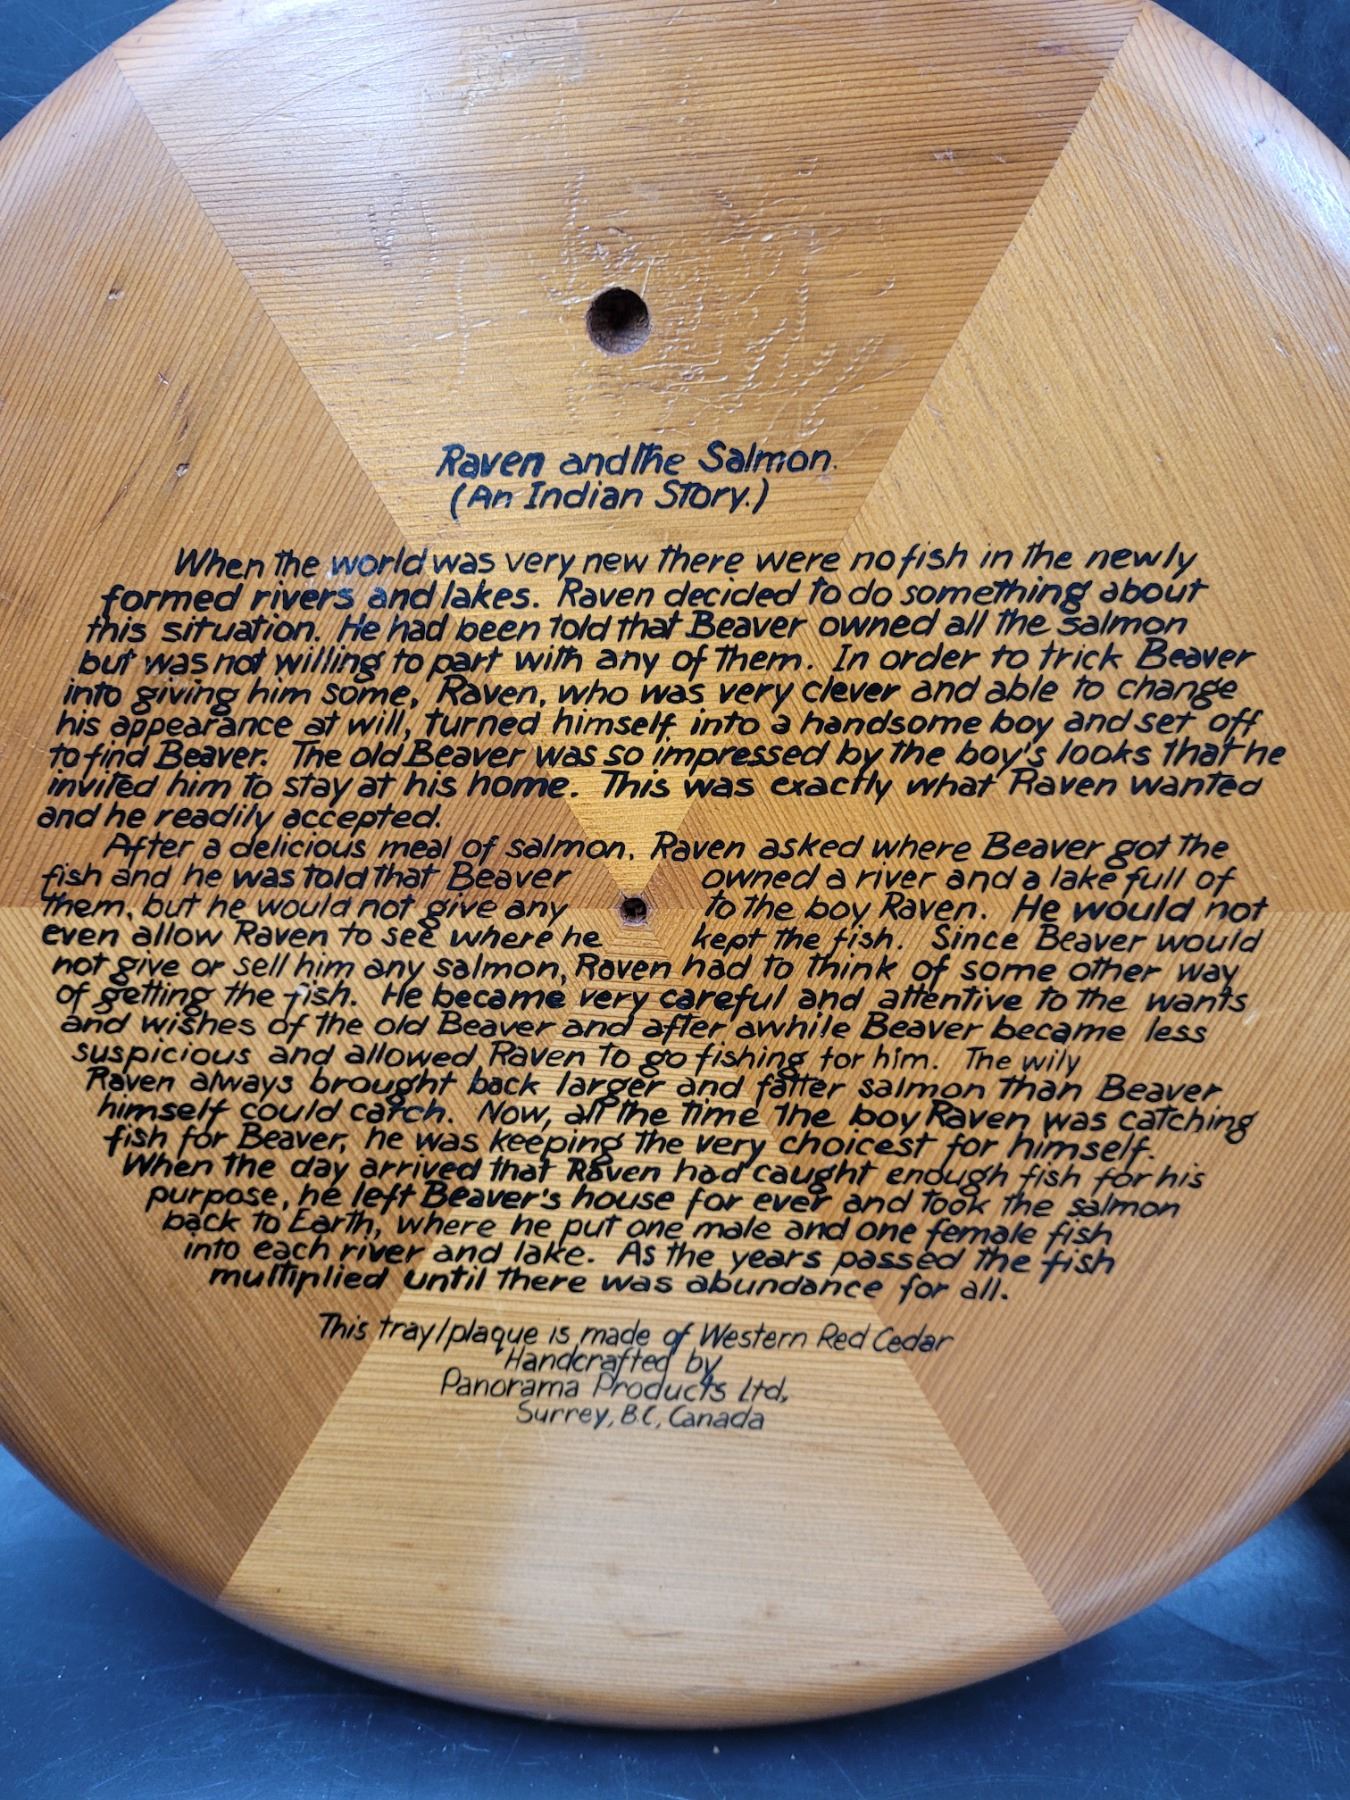 Raven and the Salmon.
(An Indian Story.)
When the world was very new there were no fish in the newly
formed rivers and lakes. Raven decided to do something about
this situation. He had been told that Beaver owned all the salmon
but was not willing to part with any of them. In order to trick Beaver
into giving him some, Raven, who was very clever and able to change
his appearance at will, turned himself into a handsome boy and set off
to find Beaver. The old Beaver was so impressed by the boy's looks that he
invited him to stay at his home. This was exactly what Raven wanted
and he readily accepted.
After a delicious meal of salmon, Raven asked where Beaver got the
fish and he was told that Beaver owned a river and a lake full of
them, but he would not give any to the boy Raven. He would not
even allow Raven to see where he kept the fish. Since Beaver would
not give or sell him any salmon, Raven had to think of some other way
of getting the fish. He became very careful and attentive to the wants
and wishes of the old Beaver and after awhile Beaver became less
suspicious and allowed Raven to go fishing for him. The wily
Raven always brought back larger and fatter salmon than Beaver
himself could catch. Now, all the time the boy Raven was catching
fish for Beaver, he was keeping the very choicest for himself.
When the day arrived that Raven had caught enough fish for his
purpose, he left Beaver's house for ever and took the salmon
back to Earth, where he put one male and one female fish
into each river and lake. As the years passed the fish
multiplied until there was abundance for all.
This tray/plaque is made of Western Red Cedar
Handcrafted by
Panorama Products Ltd,
Surrey, B.C, Canada